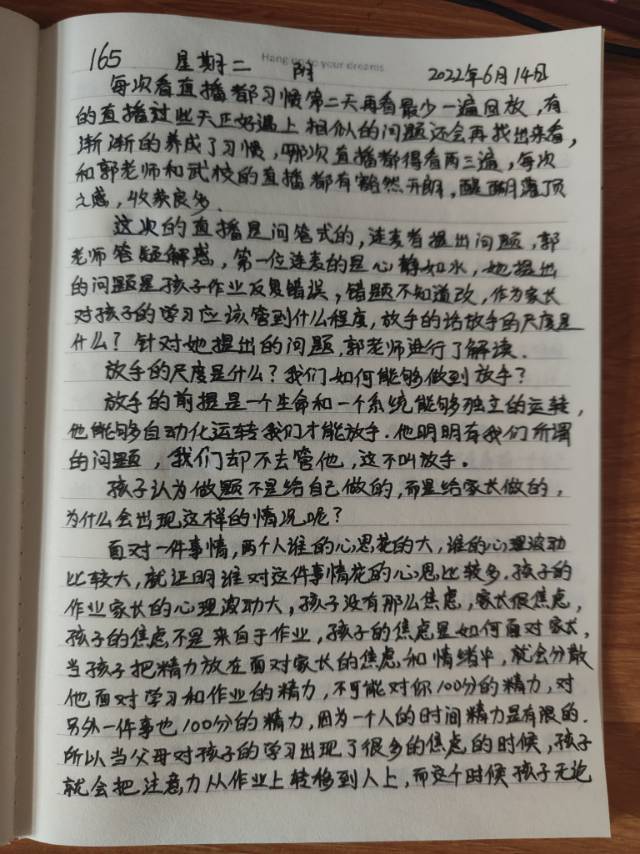 Hang on to your dreams
165 星期二 阴 2022年6月14日
每次看直播都习惯第二天再看最少一遍回放，有
的直播过些天正好遇上相似的问题还会再找出来看，
渐渐的养成了习惯，哪次直播都得看两三遍，每次
和郭老师和武校的直播都有豁然开朗，醍醐灌顶
之感，收获良多．
这次的直播是问答式的，连麦者提出问题，郭
老师答疑解惑，第一位连麦的是心静如水，她提出
的问题是孩子作业反复错误，错题不知道改，作为家长
对孩子的学习应该管到什么程度，放手的话放手的尺度是
什么？针对她提出的问题，郭老师进行了解读．
放手的尺度是什么？我们如何能够做到放手？
放手的前提是一个生命和一个系统能够独立的运转，
他能够自动化运转我们才能放手．他明明有我们所谓
的问题，我们却不去管他，这不叫放手。
孩子认为做题不是给自己做的，而是给家长做的，
为什么会出现这样的情况呢？
面对一件事情，两个人谁的心思花的大，谁的心理波动
比较大，就证明谁对这件事情花的心思比较多．孩子的
作业家长的心理波动大，孩子没有那么焦虑，家长很焦虑，
孩子的焦虑不是来自于作业，孩子的焦虑是如何面对家长，
当孩子把精力放在面对家长的焦虑和情绪中，就会分散
他面对学习和作业的精力，不可能对你100分的精力，对
另外一件事也100分的精力，因为一个人的时间精力是有限的．
所以当父母对孩子的学习出现了很多的焦虑的时候，孩子
就会把注意力从作业上转移到人上，而这个时候孩子无论